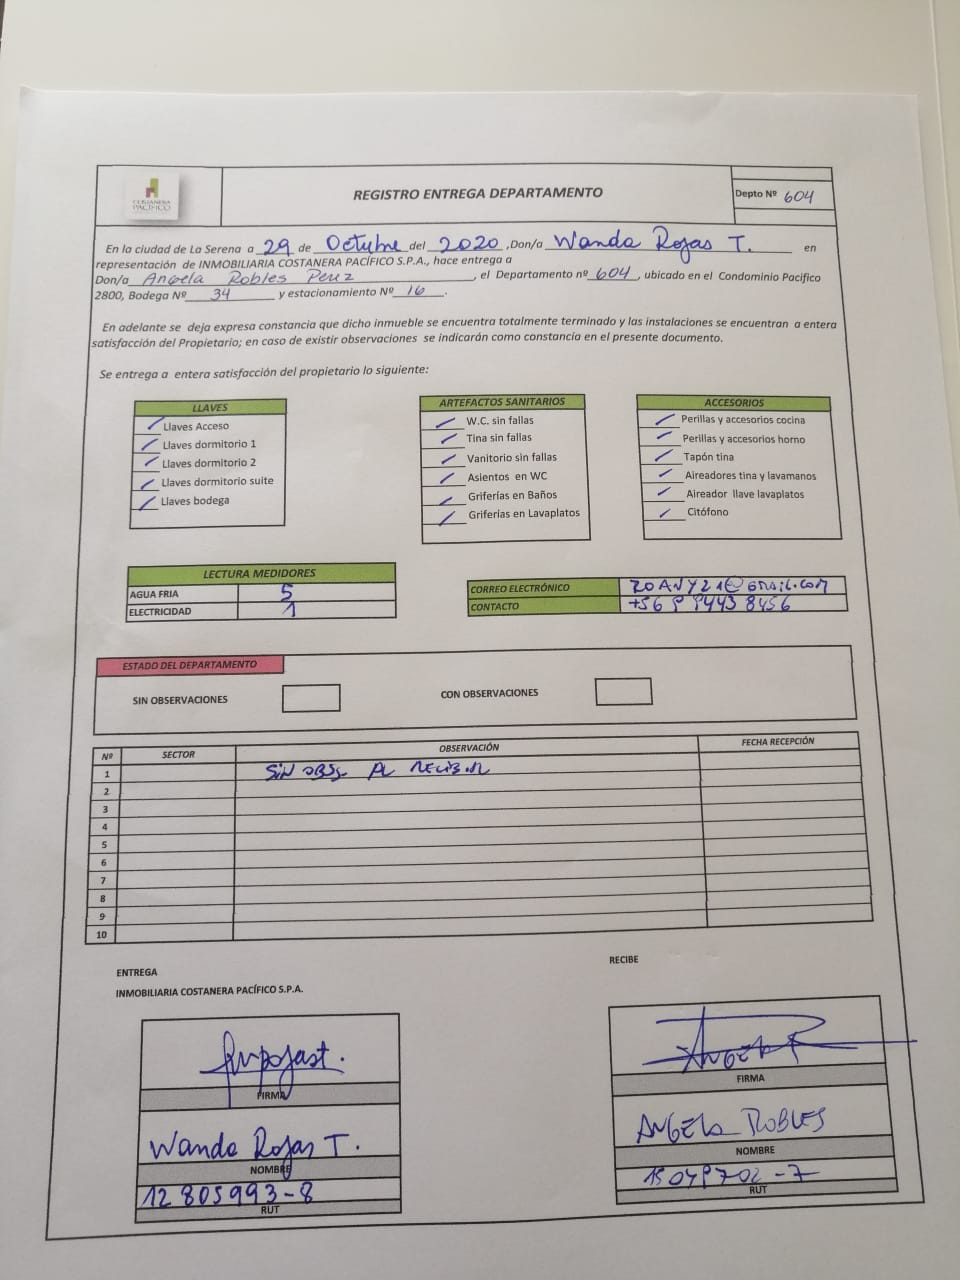 COSTANERA PACÍFICO
REGISTRO ENTREGA DEPARTAMENTO
Depto Nº 604
En la ciudad de La Serena a 29 de Octubre del 2020 ,Don/a Wanda Rojas T. en
representación de INMOBILIARIA COSTANERA PACÍFICO S.P.A., hace entrega a
Don/a Angela Robles Perez , el Departamento nº 604 , ubicado en el Condominio Pacifico
2800, Bodega Nº 34 y estacionamiento Nº 16 .
En adelante se deja expresa constancia que dicho inmueble se encuentra totalmente terminado y las instalaciones se encuentran a entera
satisfacción del Propietario; en caso de existir observaciones se indicarán como constancia en el presente documento.
Se entrega a entera satisfacción del propietario lo siguiente:
LLAVES
Llaves Acceso
Llaves dormitorio 1
Llaves dormitorio 2
Llaves dormitorio suite
Llaves bodega
ARTEFACTOS SANITARIOS
W.C. sin fallas
Tina sin fallas
Vanitorio sin fallas
Asientos en WC
Griferías en Baños
Griferías en Lavaplatos
ACCESORIOS
Perillas y accesorios cocina
Perillas y accesorios horno
Tapón tina
Aireadores tina y lavamanos
Aireador llave lavaplatos
Citófono
LECTURA MEDIDORES
AGUA FRIA 5
ELECTRICIDAD 1
CORREO ELECTRÓNICO ROANY21@GMAIL.COM
CONTACTO +56 9 9443 8456
ESTADO DEL DEPARTAMENTO
SIN OBSERVACIONES
CON OBSERVACIONES
Nº SECTOR OBSERVACIÓN FECHA RECEPCIÓN
1 SIN OBSS. AL RECIBIR
2
3
4
5
6
7
8
9
10
ENTREGA
INMOBILIARIA COSTANERA PACÍFICO S.P.A.
FIRMA
Wanda Rojas T.
NOMBRE
12 805993-8
RUT
RECIBE
ANGELA R
FIRMA
ANGELA ROBLES
NOMBRE
15 049702-7
RUT